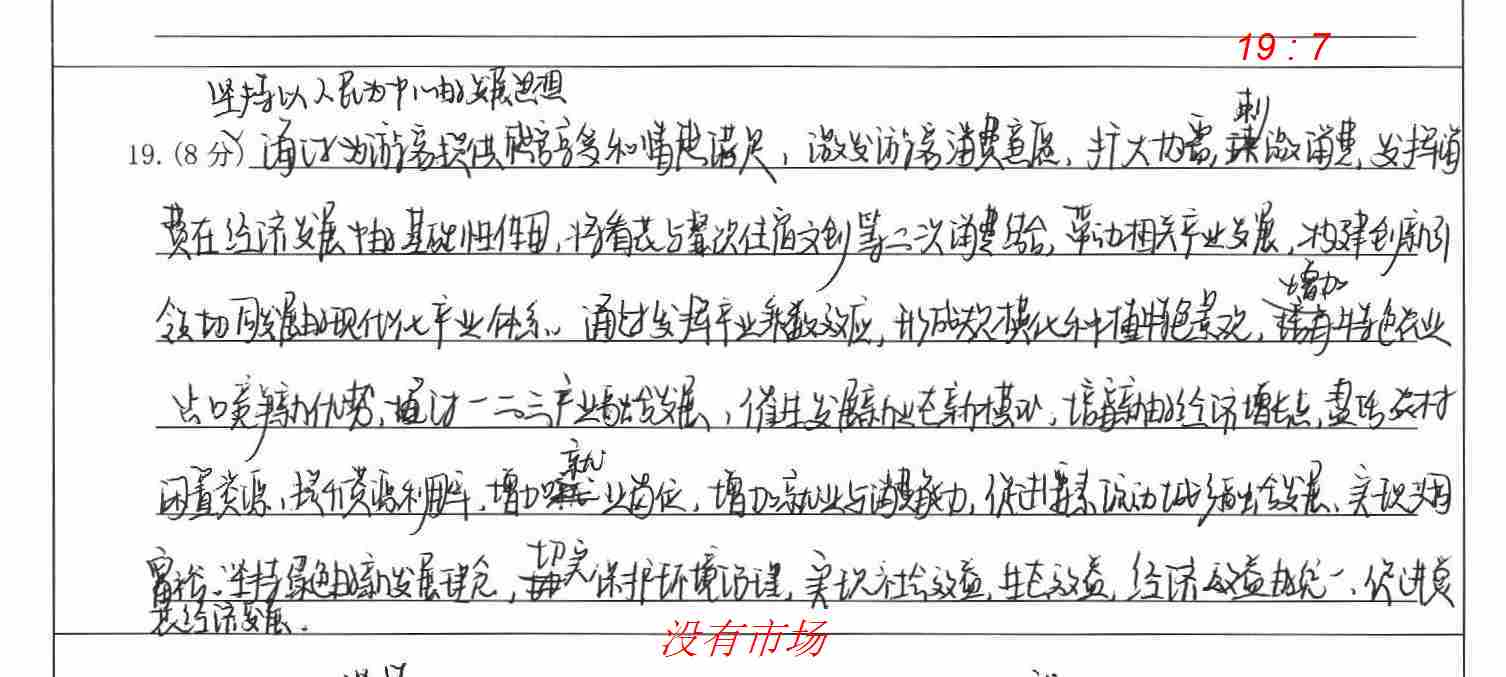 19：7
坚持以人民为中心的发展思想
刺
19.(8分) 通过为游客提供感官享受和情绪满足，激发游客消费意愿，扩大内需，激消费，发挥消
费在经济发展中的基础性作用，将看花与餐饮住宿文创等二次消费结合，带动相关产业发展，构建创新引
领协同发展的现代化产业体系。通过发挥产业乘数效应，形成规模化种植特色景观，
增加
特色农业
占竞争新优势，通过一二三产业融合发展，催生发展新业态新模式，培育新的经济增长点，盘活农村
闲置资源，提升资源利用率，增加就业岗位，增加就业与消费能力，促进要素流动城乡融合发展、实现共同
富裕。坚持绿色的新发展理念，切实保护环境治理，实现社会效益，生态效益，经济效益的统一、促进赏
花经济发展.
没有市场